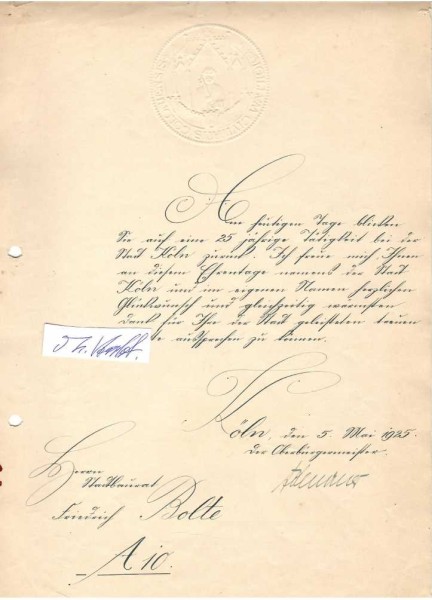 Am heutigen Tage blicken
Sie auf eine 25 jährige Tätigkeit bei der
Stadt Köln zurück. Ich freue mich Ihnen
an diesem Ehrentage namens der Stadt
Köln und im eigenen Namen herzlichen
Glückwunsch und gleichzeitig wärmsten
Dank für Ihre der Stadt geleisteten treuen
aussprechen zu können.
Köln, den 5. Mai 1925.
Der Oberbürgermeister.
Adenauer
Herrn
Stadtbaurat
Friedrich Bolte
A 10.